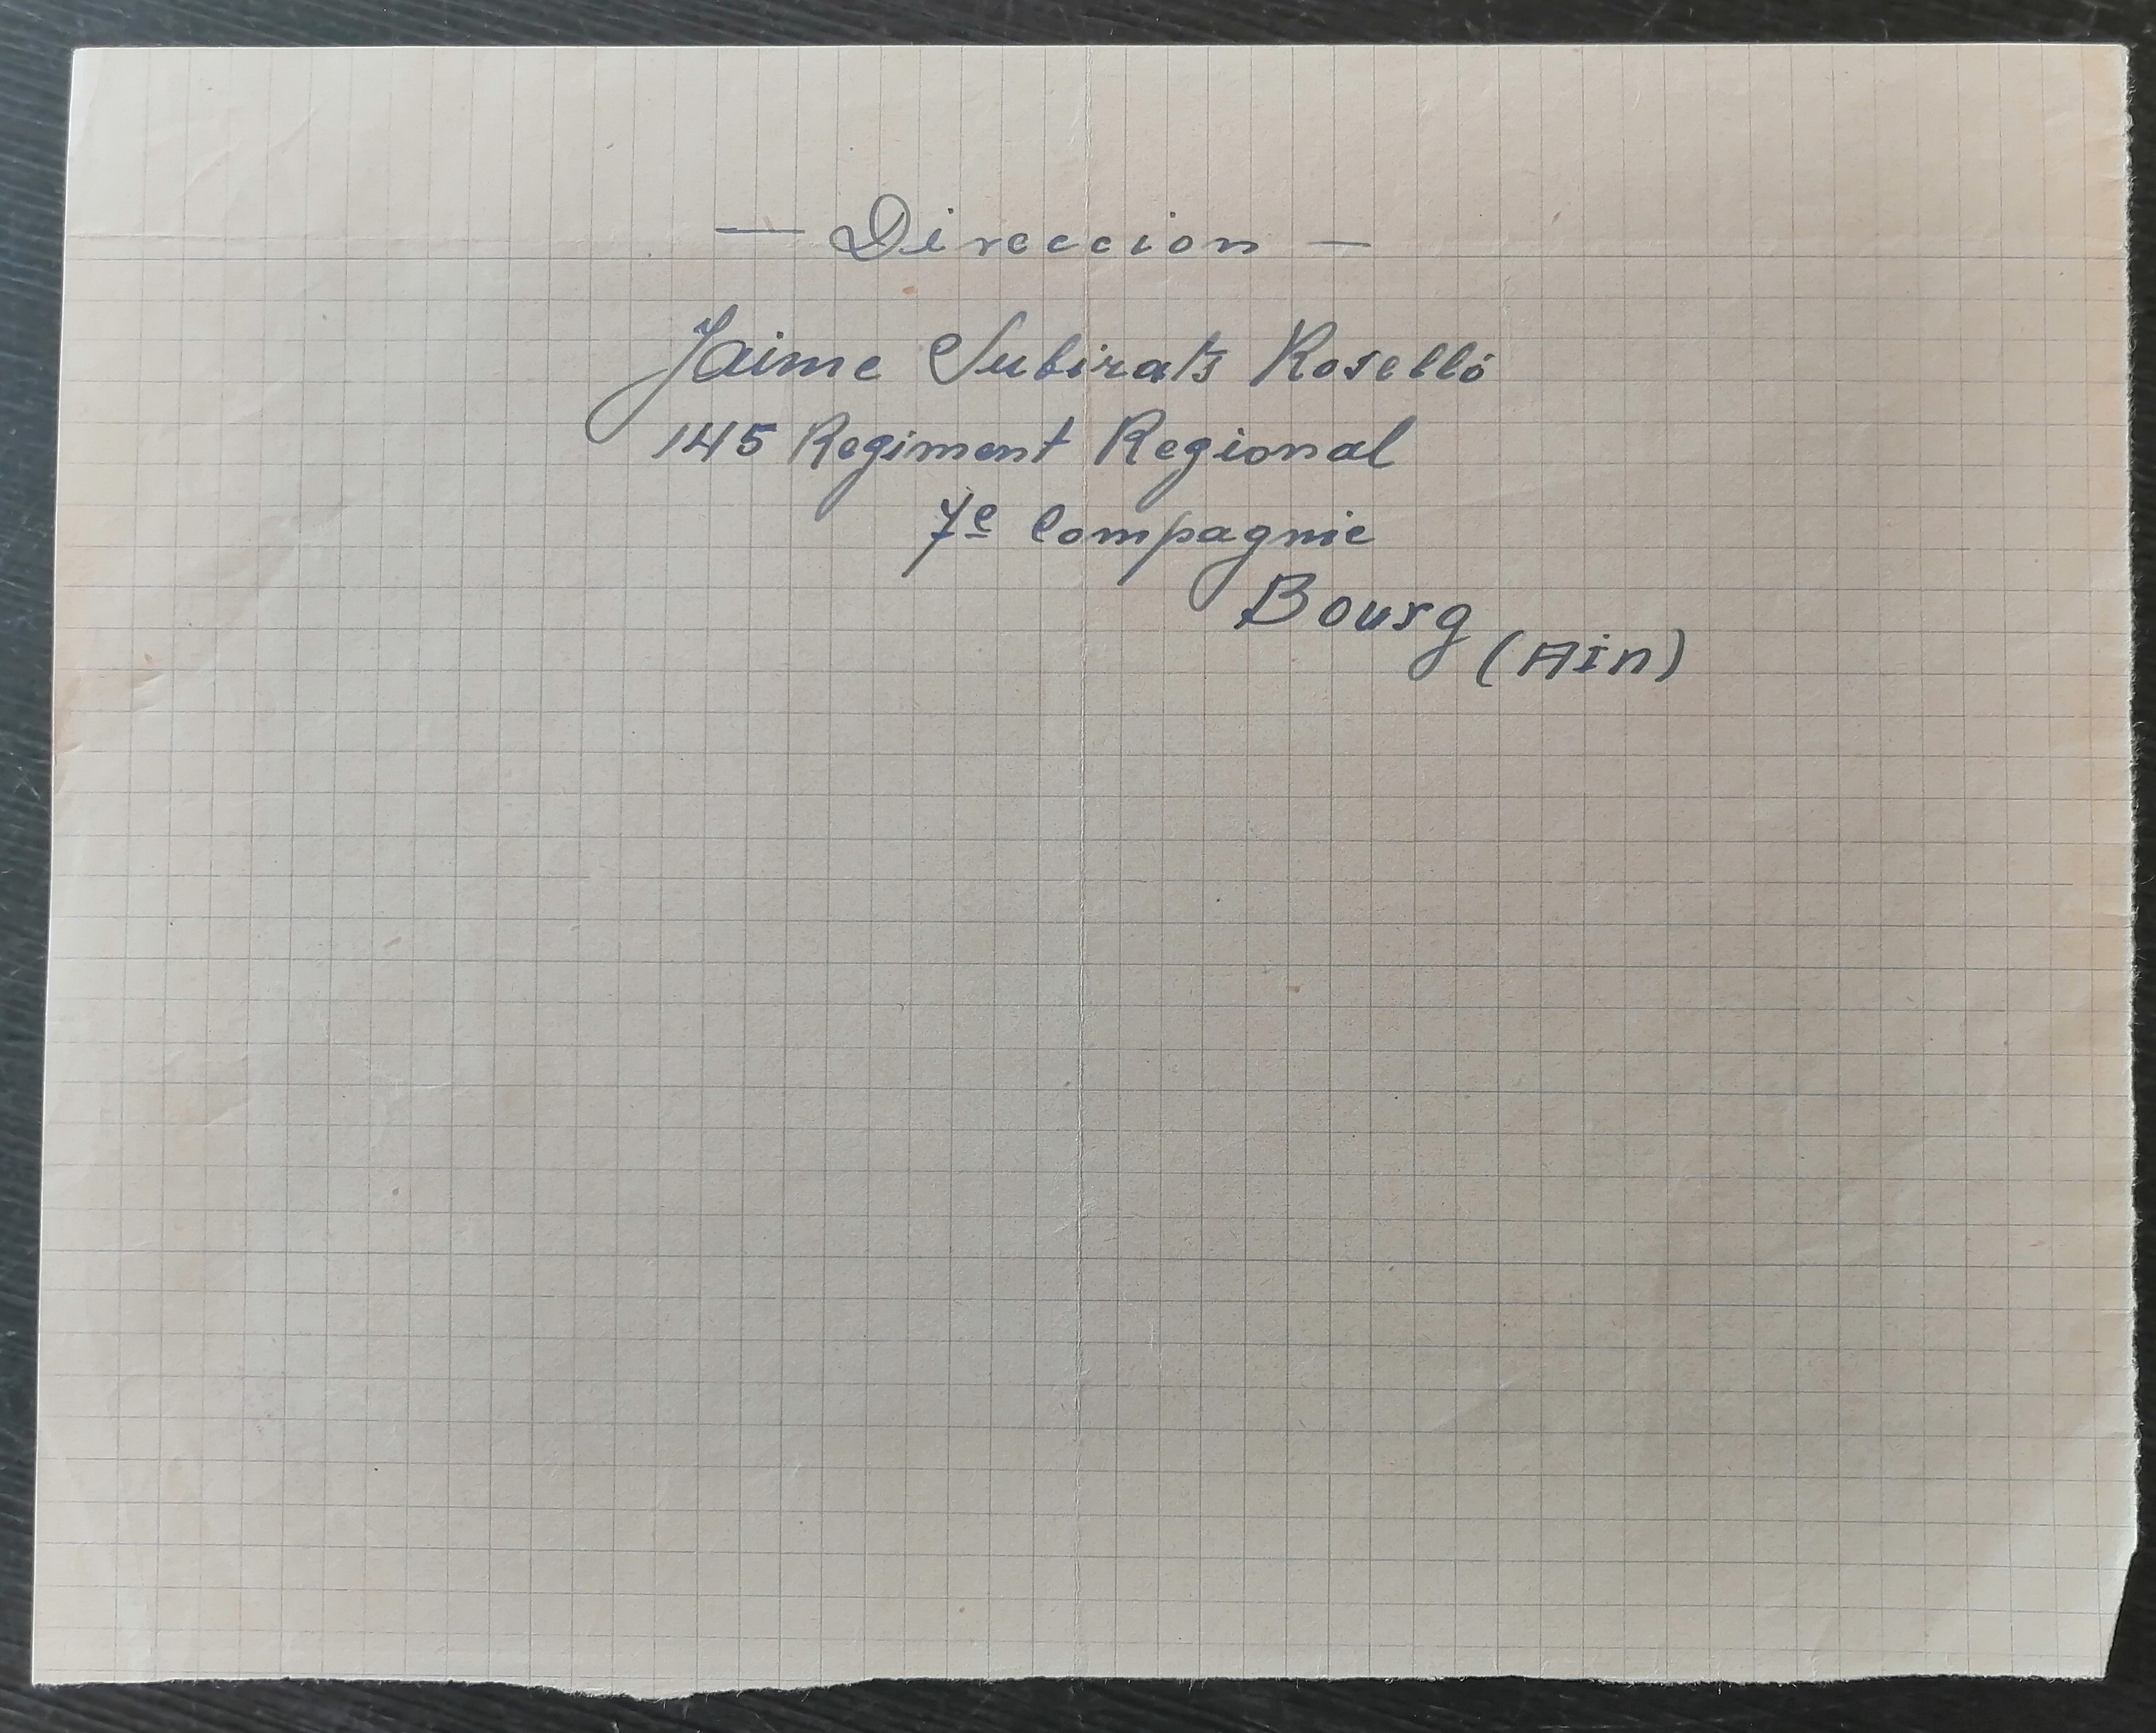 — Direccion —
Jaime Subirats Roselló
145 Regiment Regional
7e Compagnie
Bourg
(Ain)